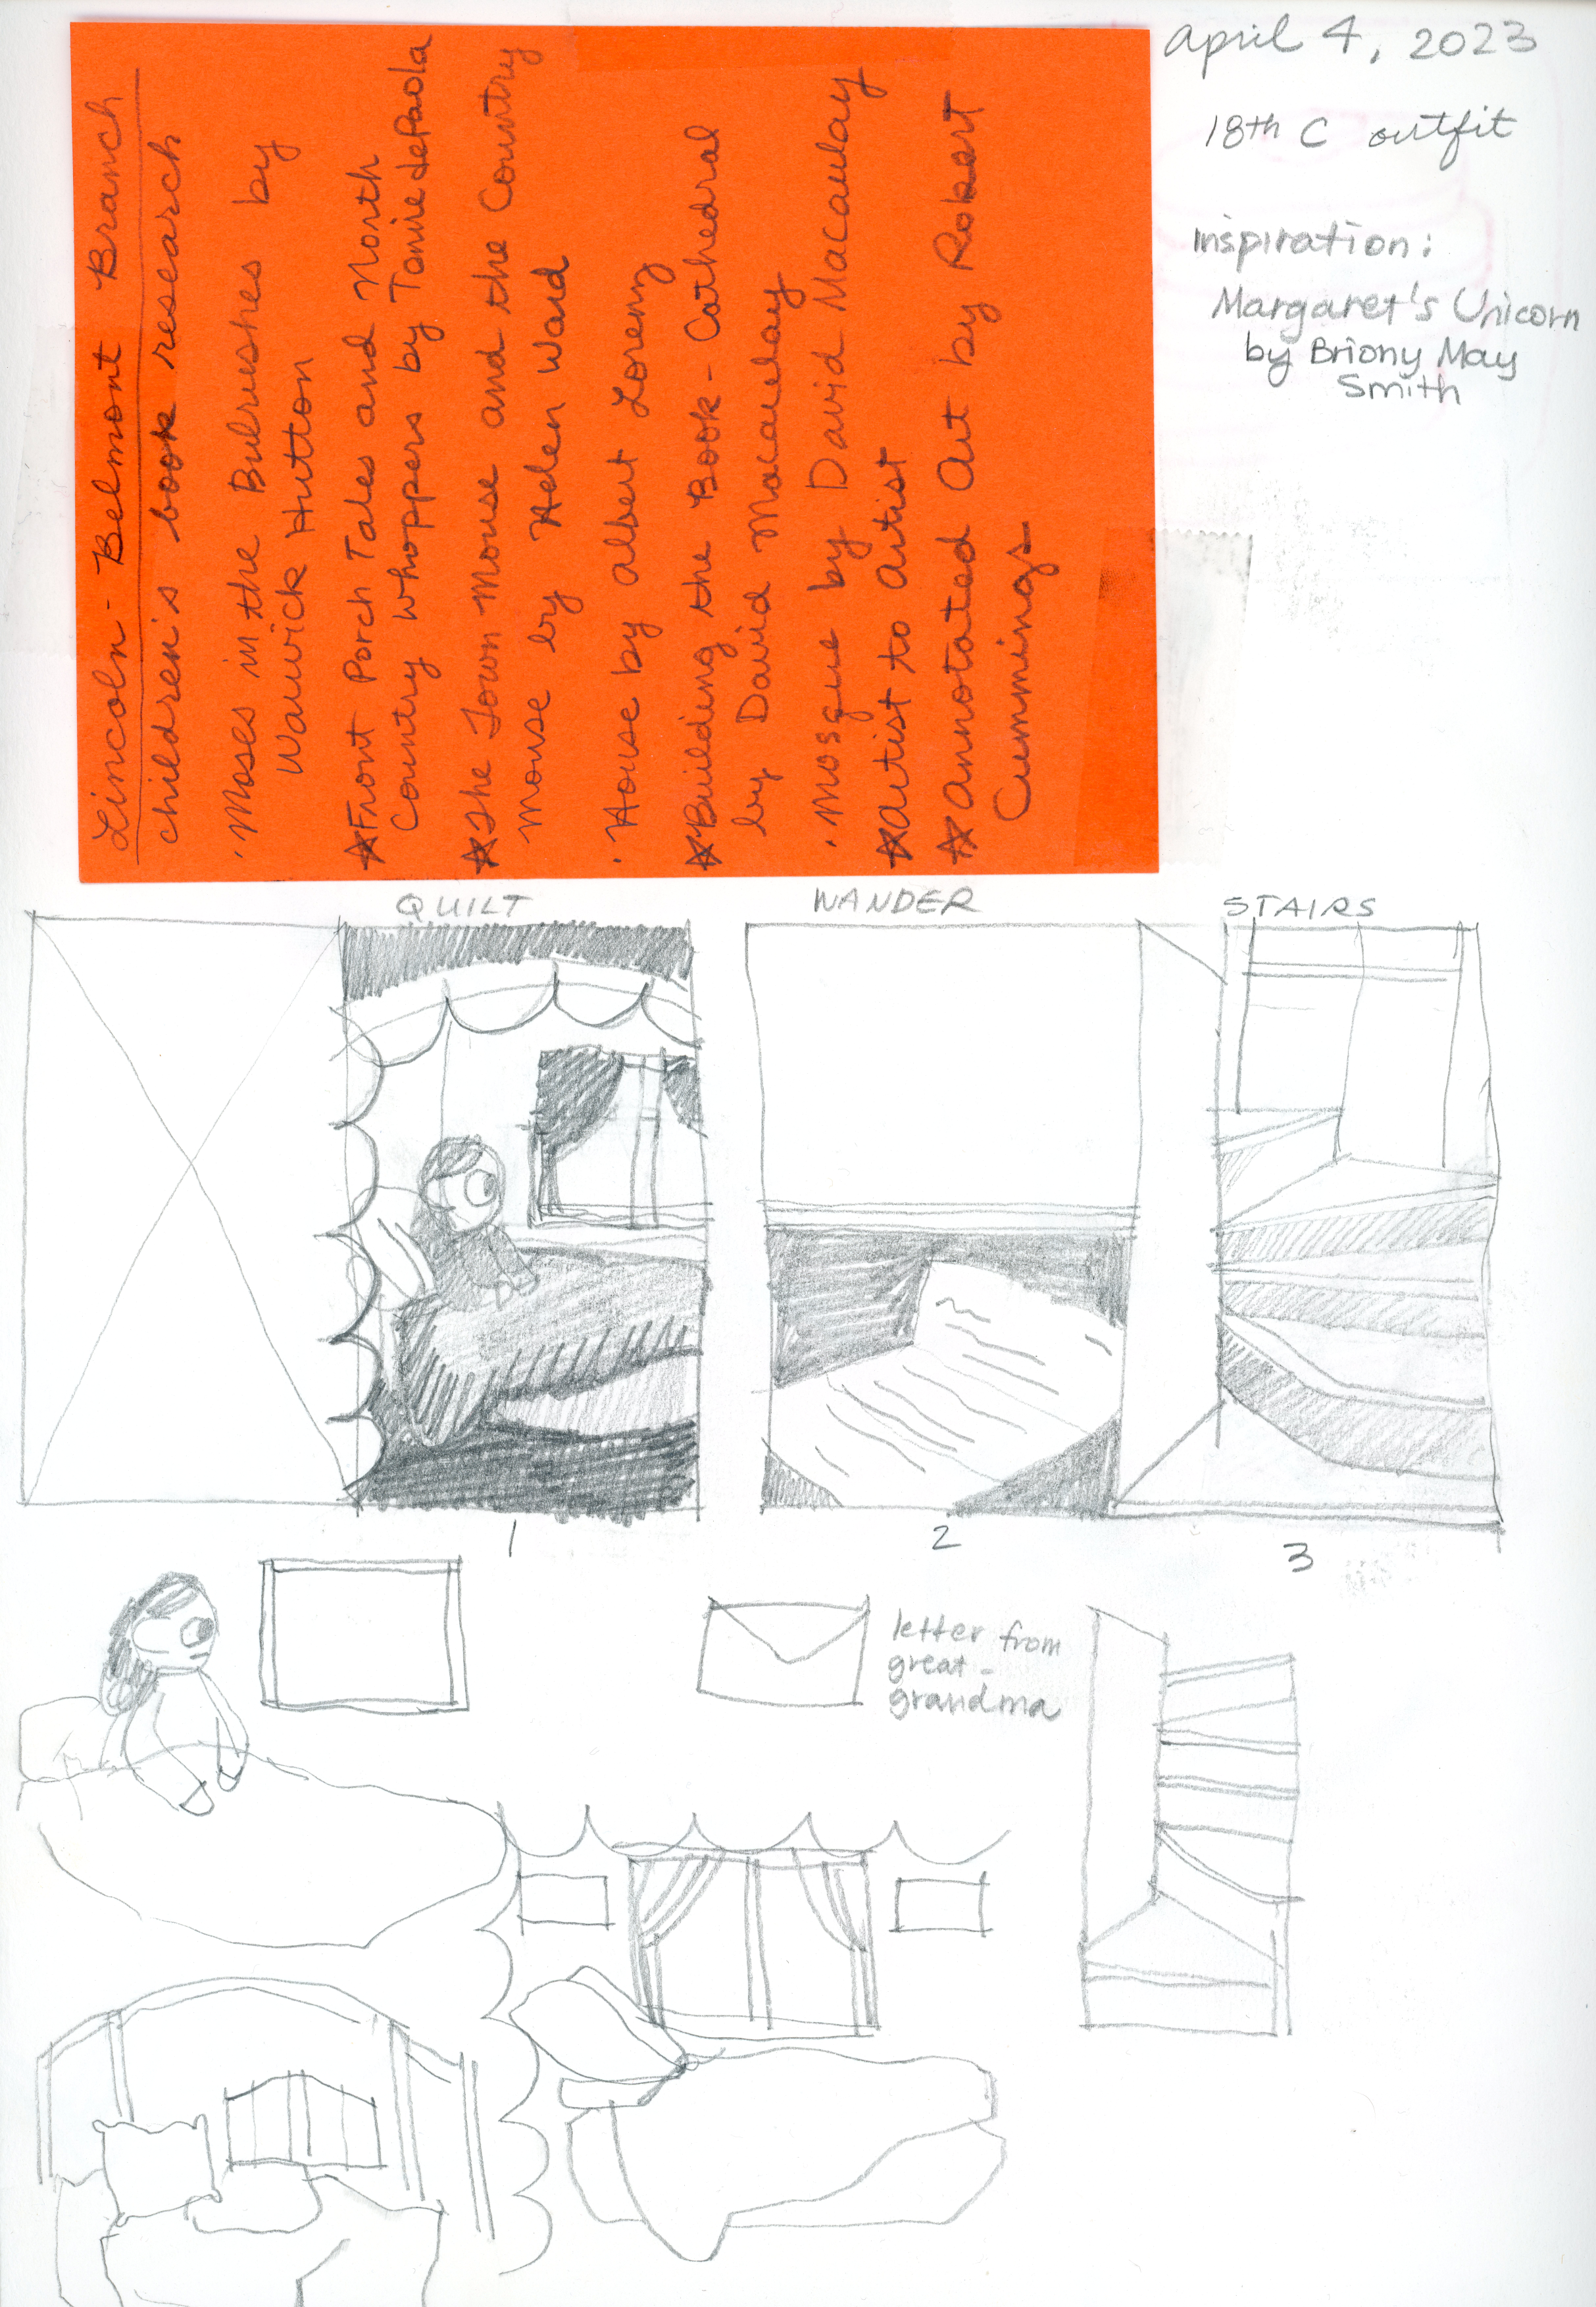 Lincoln-Belmont Branch
children's book research
·Moses in the Bulrushes by
Warwick Hutton
☆Front Porch Tales and North
Country Whoppers by Tomie dePaola
☆The Town Mouse and the Country
Mouse by Helen Ward
·House by Albert Lorenz
☆Building the Book-Cathedral
by David Macaulay
·Mosque by David Macaulay
☆Artist to Artist
☆Annotated Art by Robert
Cummings
April 4, 2023
18th C outfit
inspiration:
Margaret's Unicorn
by Briony May
Smith
QUILT
WANDER
STAIRS
1
2
3
letter from
great-
grandma